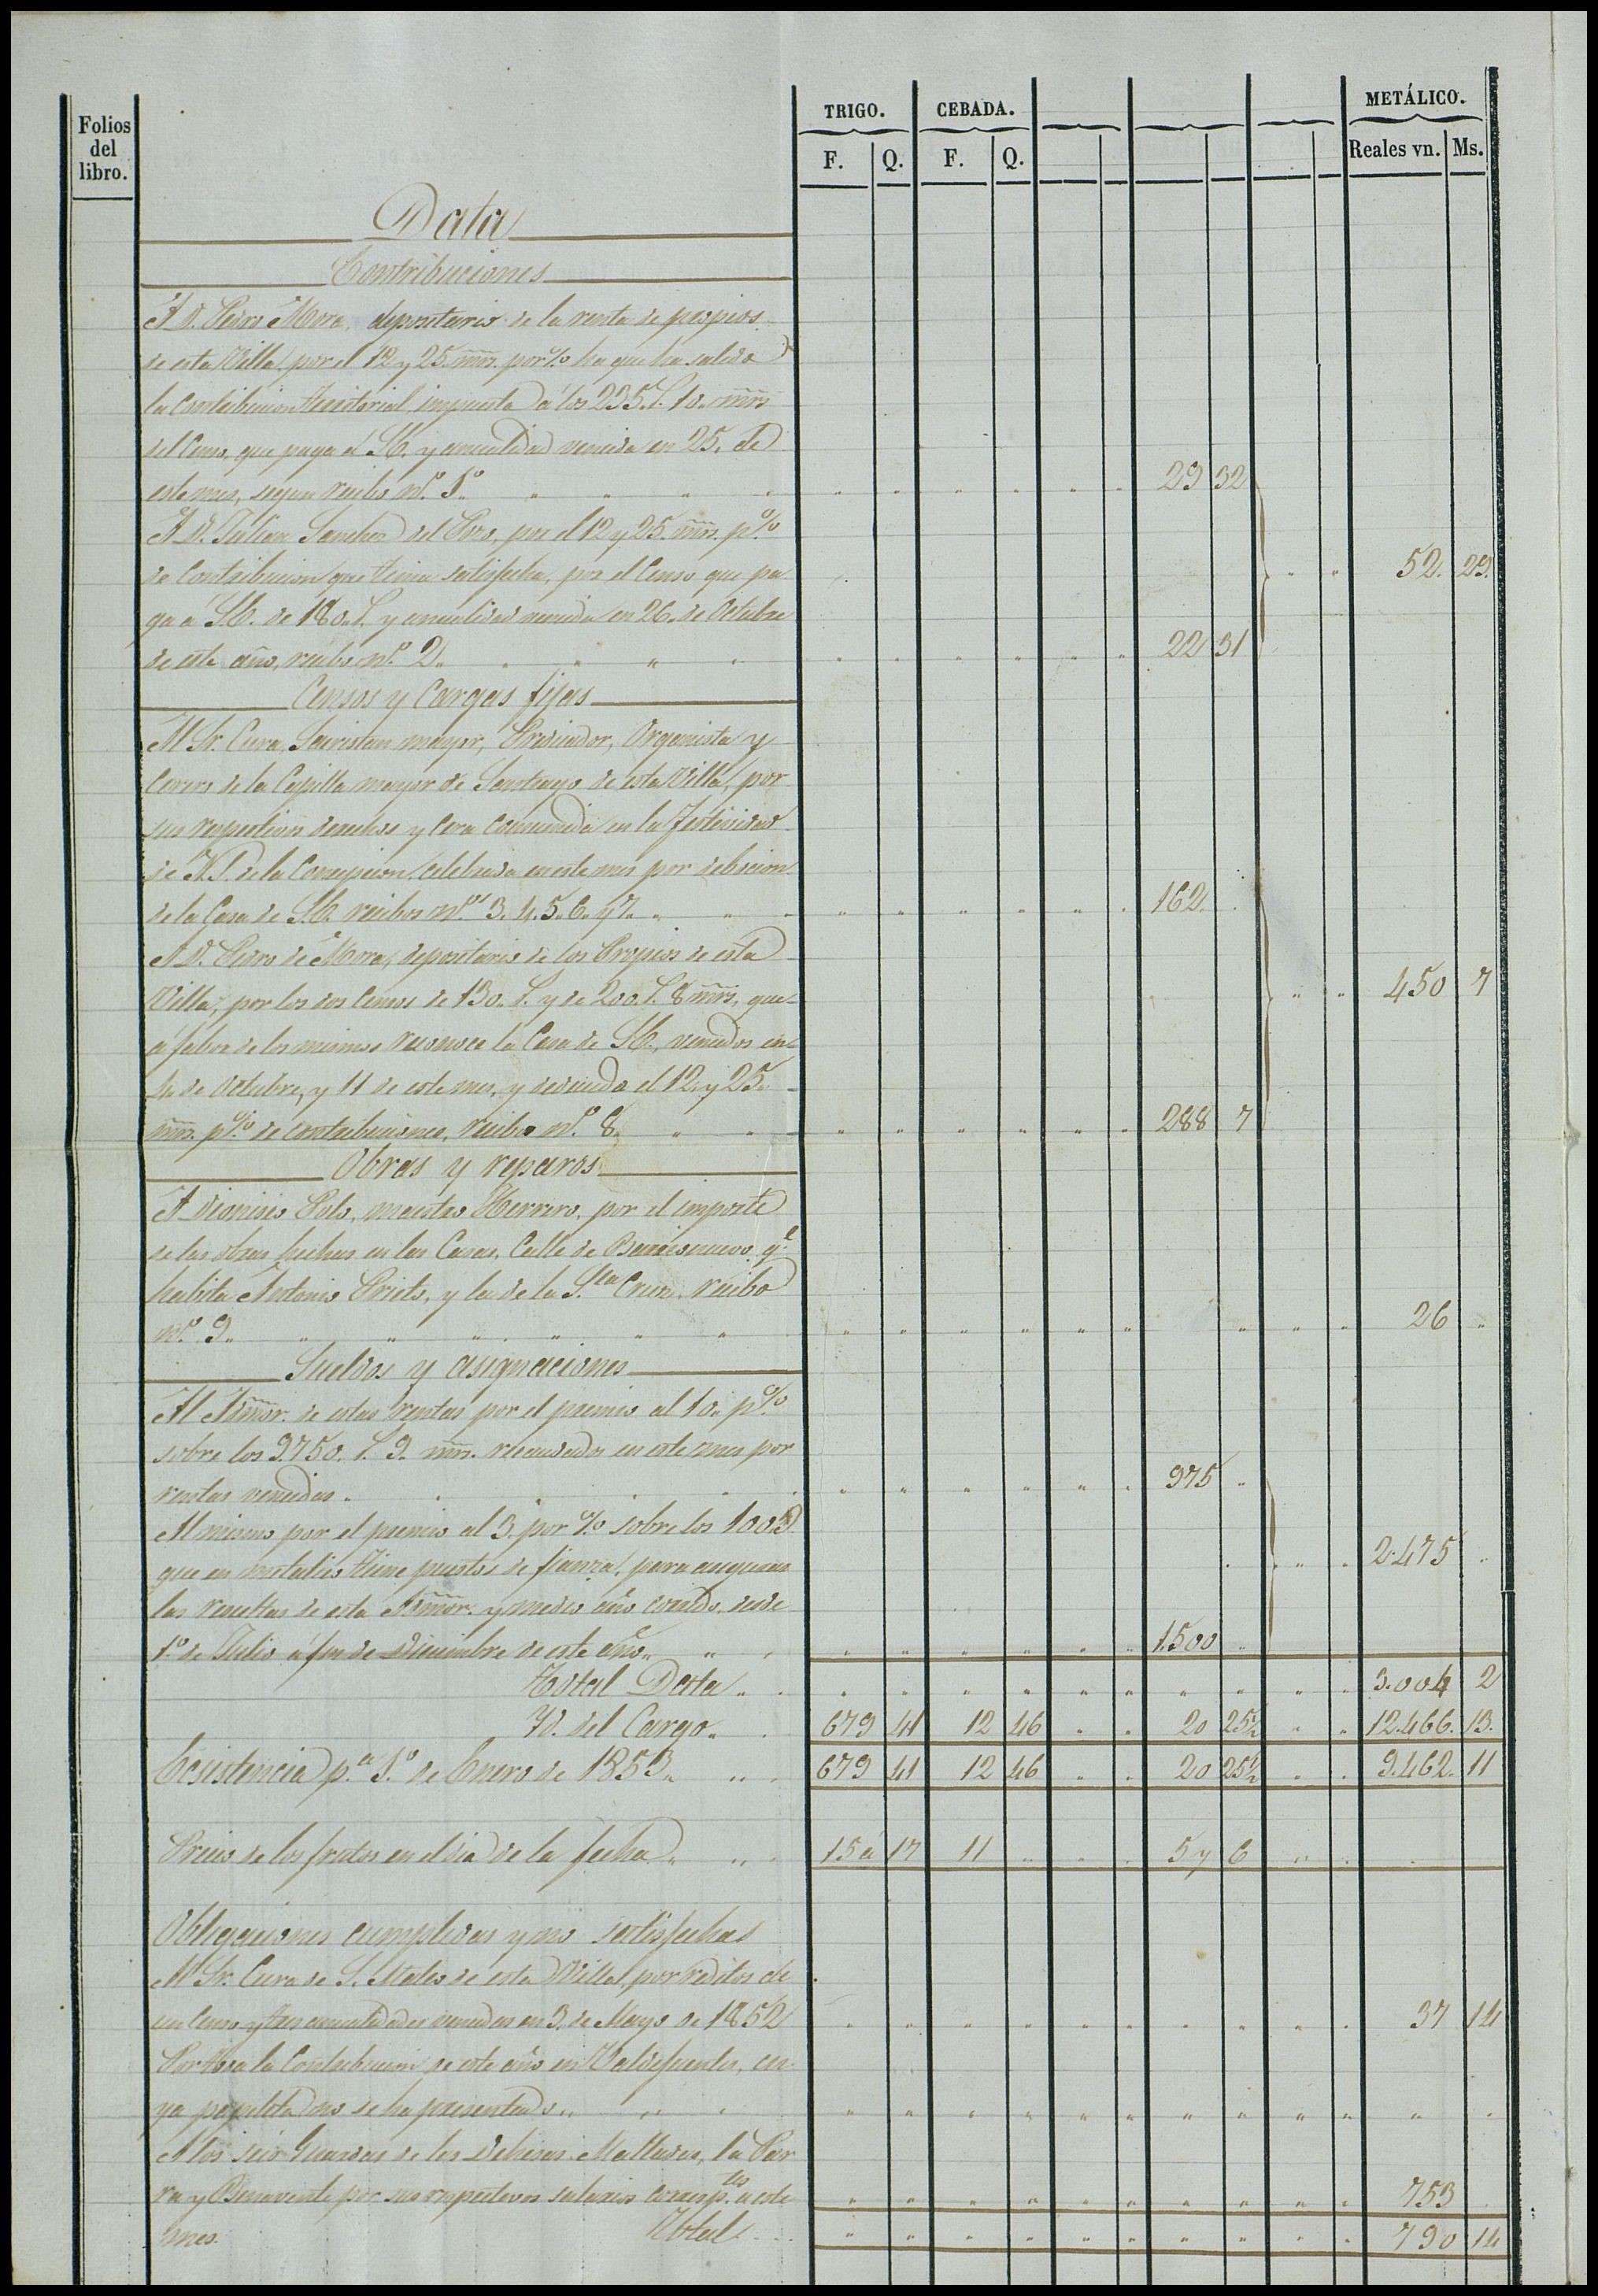 Folios del libro.
TRIGO. CEBADA. METÁLICO.
F. Q. F. Q. Reales vn. Ms.
Data
Contribuciones
A D. Pedro Mora, depositario de la renta de propios
de esta Villa, por el 12 y 25 mrs. por % ha que ha salido
la Contribucion Territorial impuesta á los 235 r. 10 mrs
del Censo, que paga á S.E. y anualidad vencida en 25, de
este mes, segun recibo nº 1º " " " " " " " " " " 29 32
A D. Julian Sanchez del Pozo, por el 12 y 25 mrs. p%
de Contribucion que tenia satisfecha, por el Censo que pa- " " 52. 29.
ga á S.E. de 180 r. y anualidad vencida en 26 de Octubre
de este año, recibo nº 2 " " " " " " " " " " 22 31
Censos y Cargas fijas
Al Sr. Cura, Sacristan mayor, Predicador, Organista y
Cerero de la Capilla mayor de Santiago de esta Villa, por
sus respectivos derechos y cera consumida en la festividad
de N.S. de la Concepcion, celebrada en este mes por debocion
de la Casa de S.E. recibos nos 3. 4. 5. 6. y 7. " " " " " " " " 162.
A D. Pedro de Mora, depositario de los Propios de esta
Villa, por los dos Censos de 130 r. y de 200 r. 8 mrs, que " " 450 7
á fabor de los mismos reconoce la Casa de S.E., vencidos en
4 de Octubre, y 11 de este mes, y deducido el 12 y 25
mrs. p% de contribuciones, recibo nº 8 " " " " " " " " 288 7
Obras y reparos
A Dionisio Polo, maestro Herrero, por el importe
de las obras hechas en las Casas, Calle de Barrionuevo qe
habita Antonio Prieto, y la de la Sta Cruz. recibo
nº 9 " " " " " " " " " " " " " " " 26 "
Sueldos y asignaciones
Al Admor. de estas rentas por el premio al 10 p%
sobre los 9.750 r. 9 mrs. recaudados en este mes por
rentas vencidas " " " " " " " 975 "
Al mismo por el premio al 3 por % sobre los 100.
que en metalico tiene puestos de fianza, para asegurar " " 2.475 "
las resultas de esta Admor. y medio año corrido, desde
1º de Julio á fin de Diciembre de este año " " " " " " " " 1.500 "
Total Data " " " " " " " " " " " " 3.004 2
Yd. del Cargo " 679 41 12 46 " " 20 25½ " " 12.466. 13.
Ecsistencia p.a 1º de Enero de 1853 " " 679 41 12 46 " " 20 25½ " " 9.462. 11
Precio de los frutos en el dia de la fecha " " 15 á 17 11 " " " 5 y 6 " "
Obligaciones cumplidas y no satisfechas
Al Sr. Cura de S. Mateo de esta Villa, por reditos de
un Censo y tres anualidades vencidas en 3 de Mayo de 1852 " " " " " " " " " " 37 14
Por toda la Contribucion de este año en Valdefuentes, cu-
ya papeleta no se ha presentado " " " " " " " " " " " " " "
A los seis Guardas de las Dehesas Malladas, la Par
ra y Benavente por sus respectivos salarios corresp.tes á este " " " " " " " " " " 753
mes. Total " " " " " " " " " " 790 14